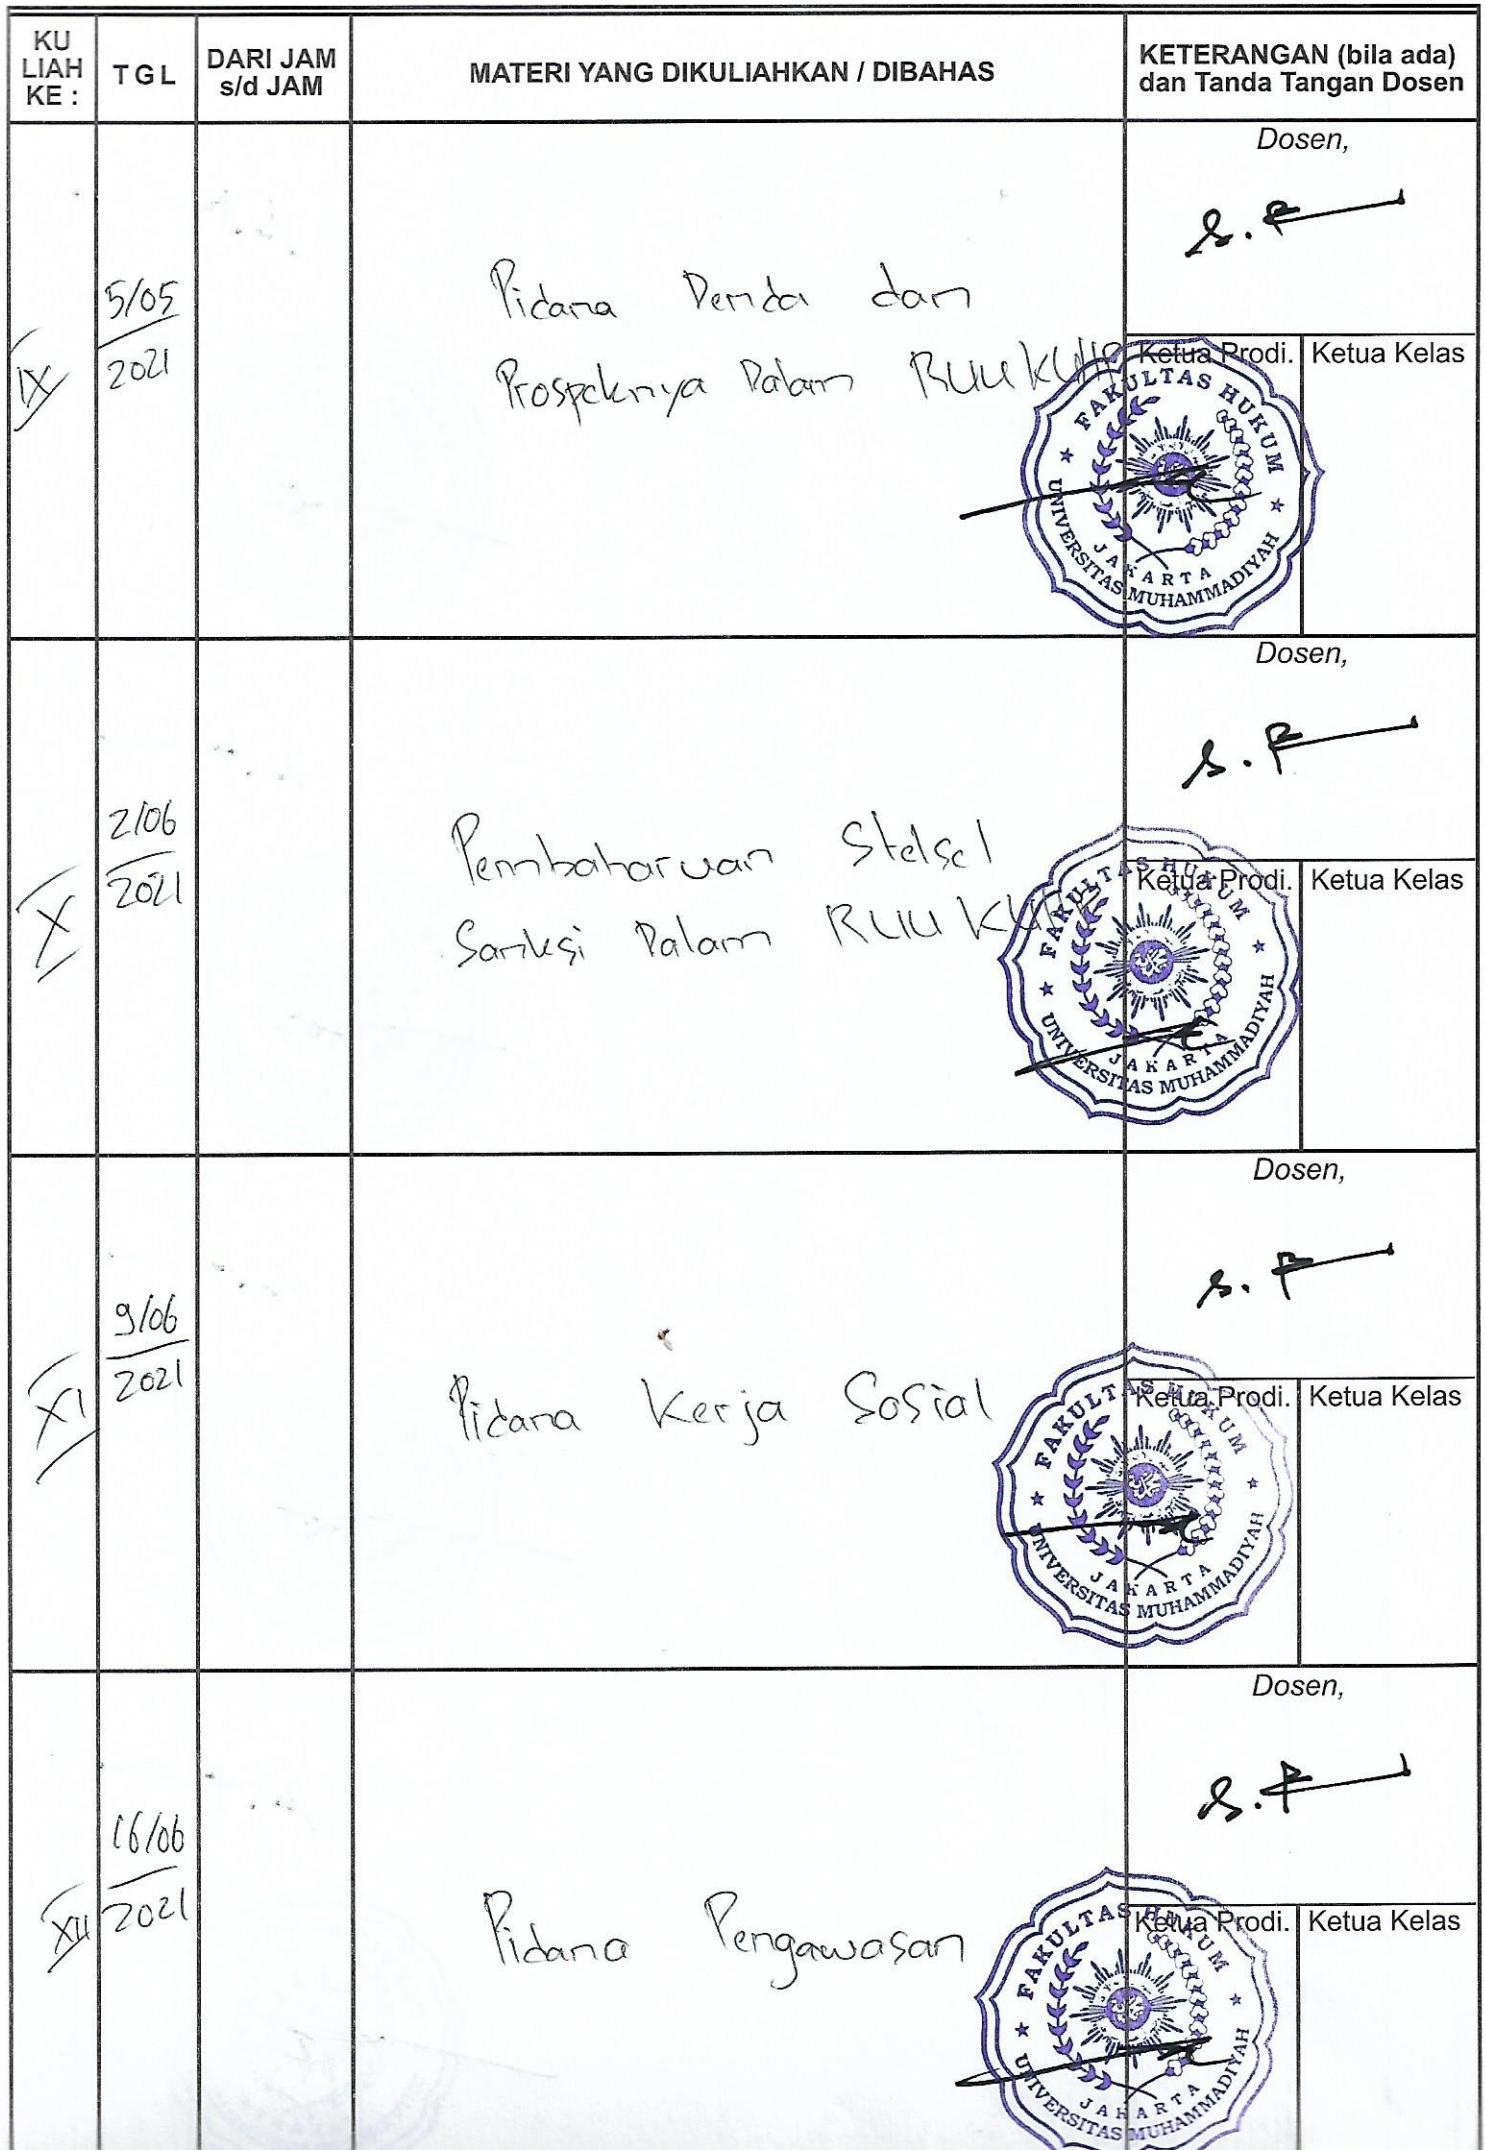 KU
LIAH
KE :
TGL
DARI JAM
s/d JAM
MATERI YANG DIKULIAHKAN / DIBAHAS
KETERANGAN (bila ada)
dan Tanda Tangan Dosen
IX
5/05
2021
Pidana Denda dan
Prospeknya Dalam RUU KUHP
Dosen,
Ketua Prodi.
Ketua Kelas
FAKULTAS HUKUM
UNIVERSITAS MUHAMMADIYAH
JAKARTA
X
2/06
2021
Pembaharuan Stelsel
Sanksi Dalam RUU KUHP
Dosen,
Ketua Prodi.
Ketua Kelas
FAKULTAS HUKUM
UNIVERSITAS MUHAMMADIYAH
JAKARTA
XI
9/06
2021
Pidana Kerja Sosial
Dosen,
Ketua Prodi.
Ketua Kelas
FAKULTAS HUKUM
UNIVERSITAS MUHAMMADIYAH
JAKARTA
XII
16/06
2021
Pidana Pengawasan
Dosen,
Ketua Prodi.
Ketua Kelas
FAKULTAS HUKUM
UNIVERSITAS MUHAMMADIYAH
JAKARTA